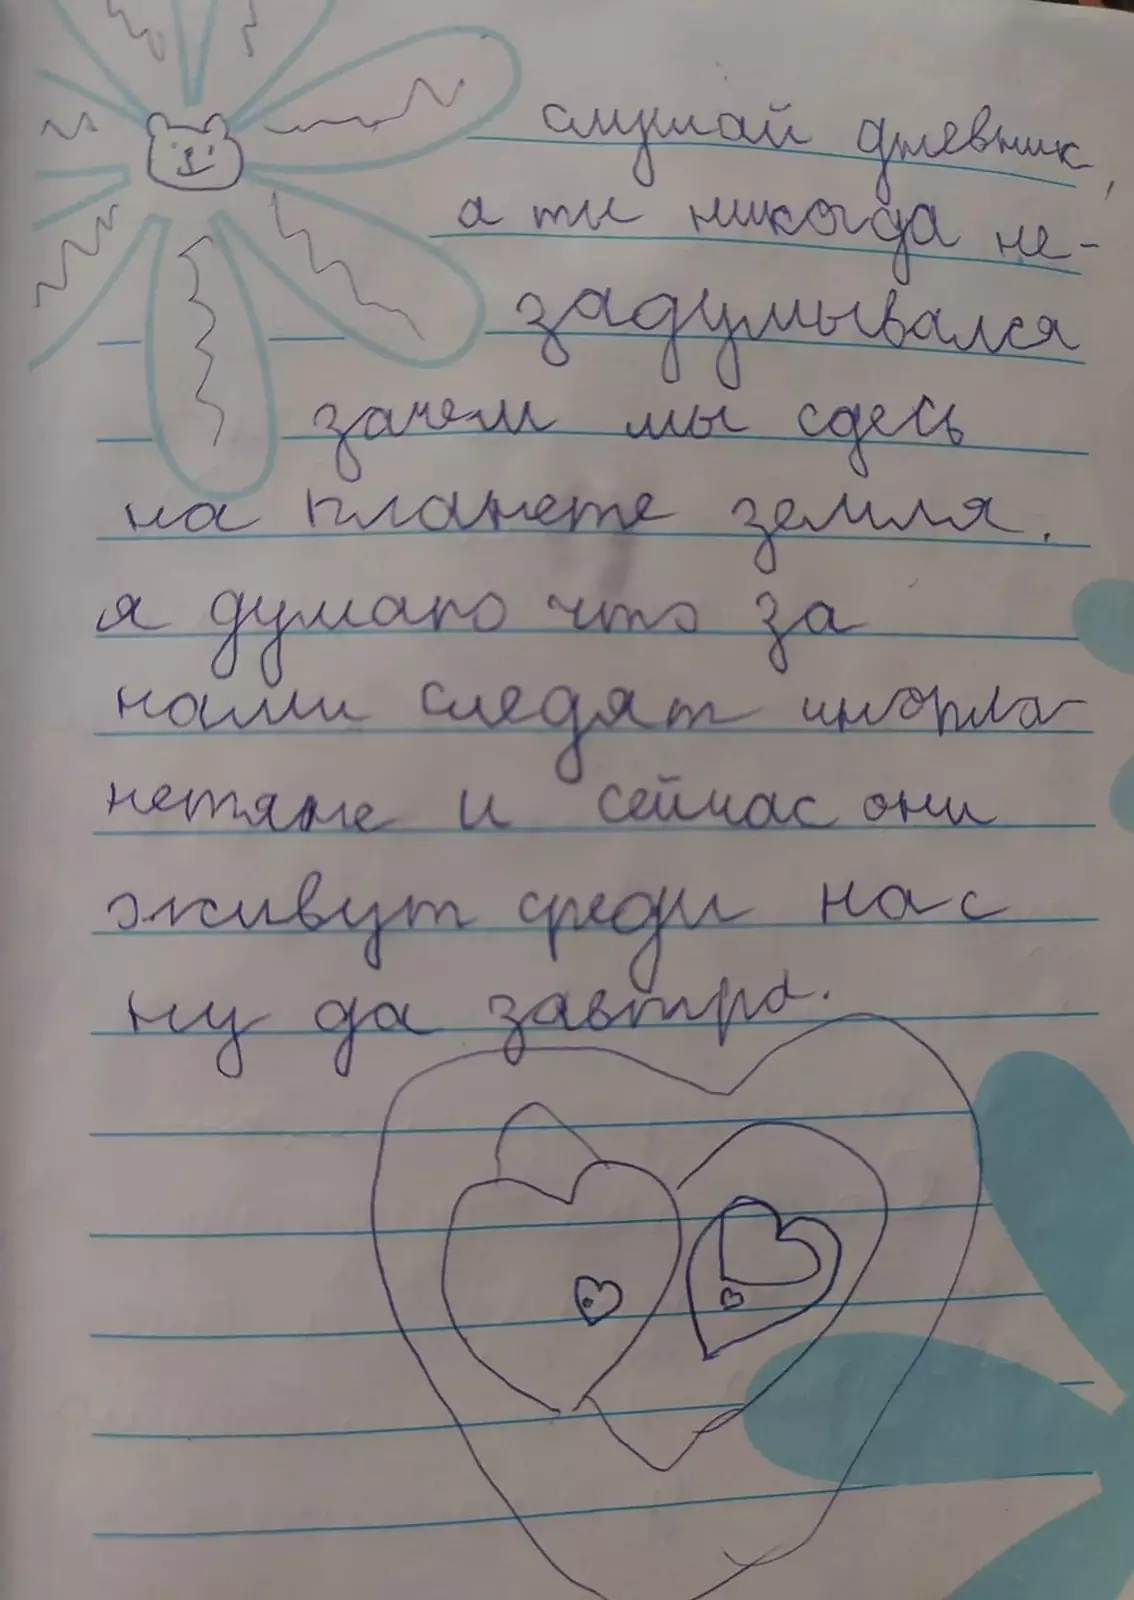 слушай дневник,
а ты никогда не-
задумывался
зачем мы сдесь
на планете земля.
я думаю что за
нами следят инопла-
нетяне и сейчас они
живут среди нас
ну да завтра.